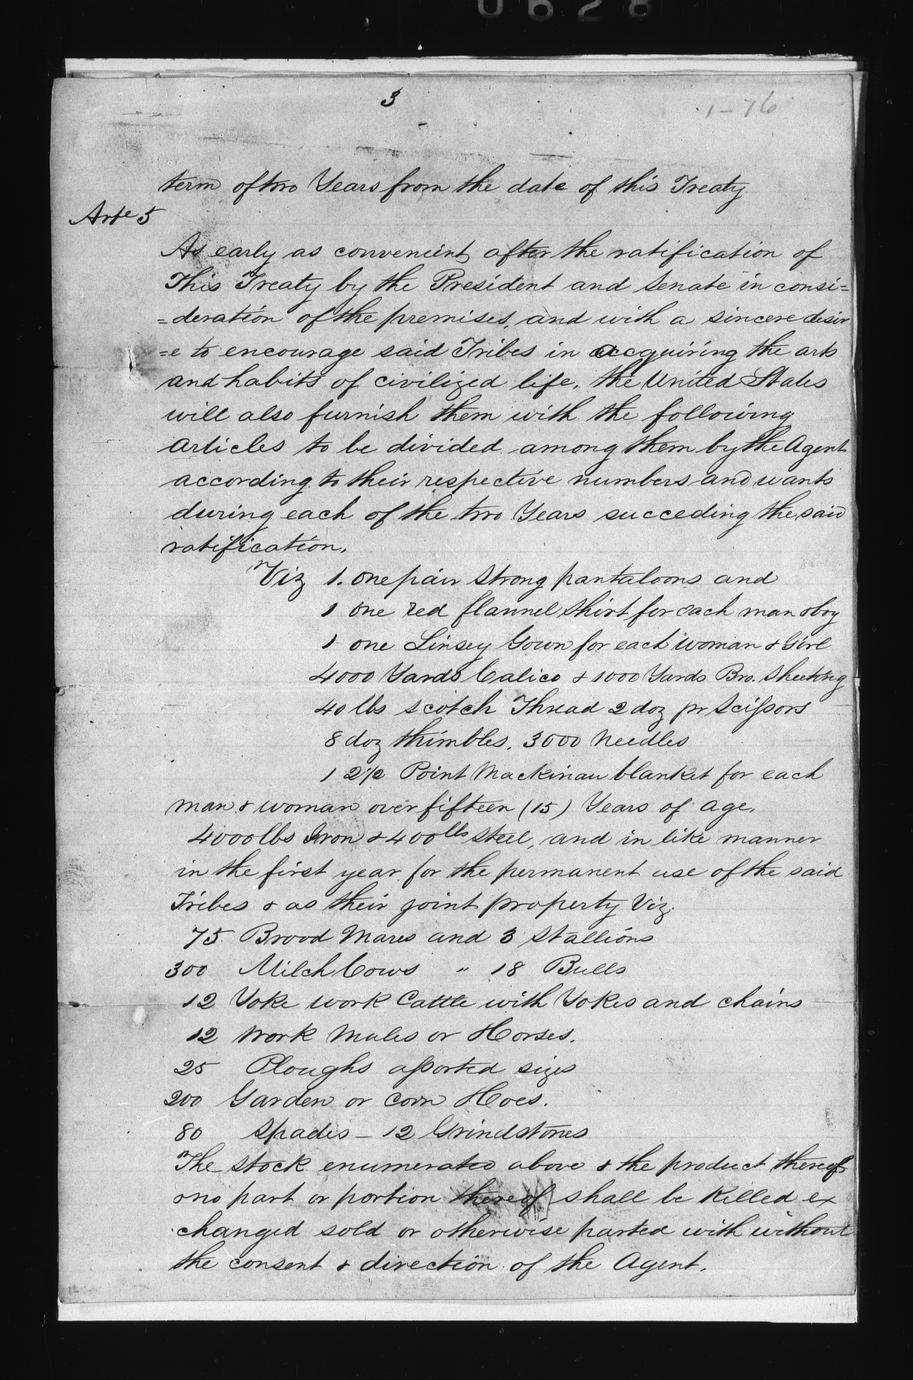 0628
3
1-76
term of two Years from the date of this Treaty
Arte 5
As early as convenient after the ratification of
This Treaty by the President and Senate in consi=
=deration of the premises, and with a sincere desir
=e to encourage said Tribes in acquiring the arts
and habits of civilized life, the United States
will also furnish them with the following
articles to be divided among them by the Agent
according to their respective numbers and wants
during each of the two Years succeding the said
ratification.
Viz 1. one pair strong pantaloons and
1 one red flannel shirt for each man & boy
1 one Linsey Gown for each woman & Girl
4000 Yards Calico & 1000 Yards Bro. Sheeting
40 lbs Scotch Thread 2 doz pr Scissors
8 doz thimbles. 3000 Needles
1 2½ Point Mackinau blanket for each
man & woman over fifteen (15) Years of age.
4000 lbs Iron & 400 lbs Steel, and in like manner
in the first year for the permanent use of the said
Tribes & as their joint property Viz.
75 Brood Mares and 3 Stallions
300 Milch Cows " 18 Bulls
12 Yoke work Cattle with Yokes and chains
12 work Mules or Horses.
25 Ploughs assorted sizes
200 Garden or corn Hoes.
80 Spades – 12 Grindstones
The stock enumerated above & the product thereof
& no part or portion thereof shall be killed ex
changed sold or otherwise parted with without
the consent & direction of the Agent.